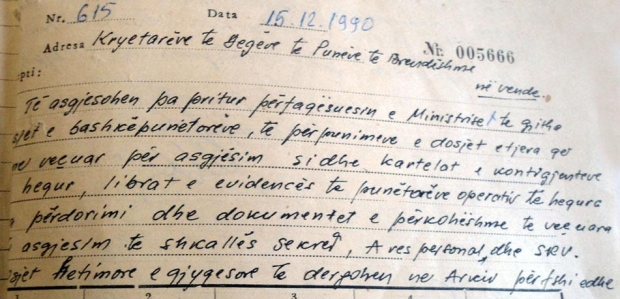 Nr. 615 Data 15.12.1990
Adresa Kryetarëve të Degëve të Punëve të Brendëshme
№ 005666
në vende.
pti:
Të asgjesohen pa pritur përfaqësuesin e Ministrisë të gjitha
sjet e bashkëpunëtorëve, të përpunimeve e dosjet e tjera që
veçuar për asgjësim sidhe kartelat e kontigjenteve
hequr, librat e evidencës të punëtorëve operativ të hequra
përdorimi dhe dokumentet e përkohëshme të veçuara
asgjesim të shkallës sekret, A res personal, dhe SRV.
sjet hetimore e gjyqësore të dërgohen në Arkiv përfshi edhe
1 2 3 4